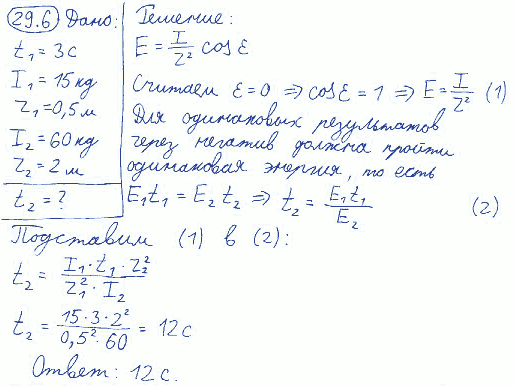 29.6 Дано:
t₁ = 3с
I₁ = 15 кд
r₁ = 0,5 м
I₂ = 60 кд
r₂ = 2 м
t₂ = ?
Решение:
E = I/r² cos ε
Считаем ε = 0 ⇒ cos ε = 1 ⇒ E = I/r² (1)
Для одинаковых результатов
через негатив должна пройти
одинаковая энергия, то есть
E₁t₁ = E₂t₂ ⇒ t₂ = E₁t₁/E₂ (2)
Подставим (1) в (2):
t₂ = I₁·t₁·r₂²/r₁²·I₂
t₂ = 15·3·2²/0,5²·60 = 12с
Ответ: 12 с.